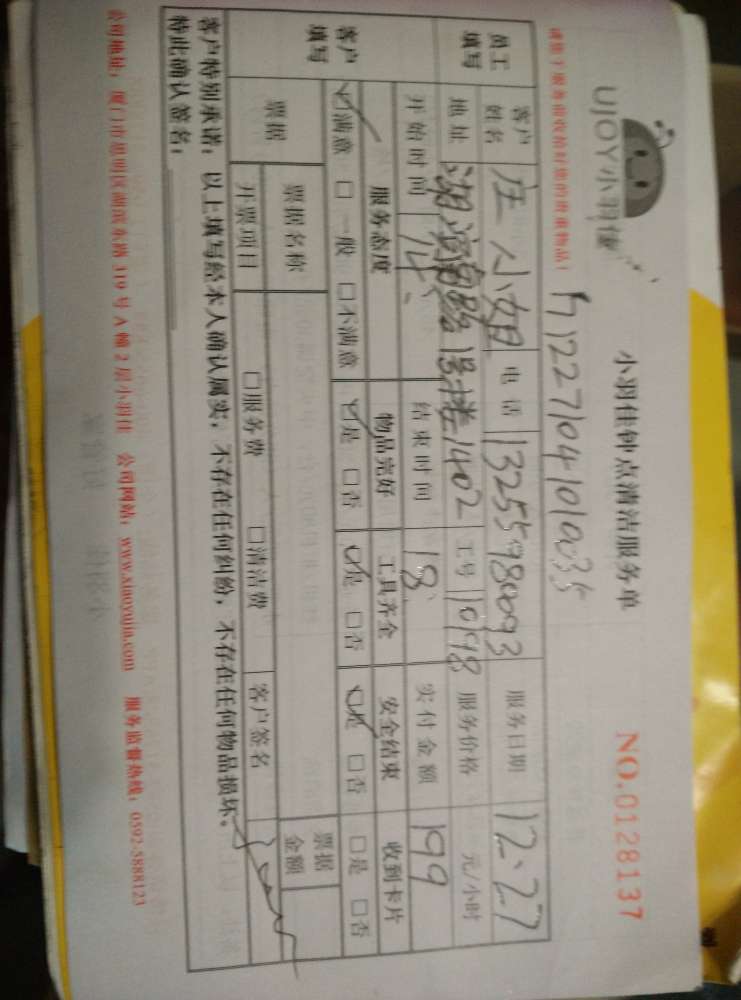 UJOY小羽佳
小羽佳钟点清洁服务单
NO.0128137
请您于服务前收拾好您的贵重物品!
员工填写
客户姓名 庄小姐 电话 13255980093 服务日期 12.27
地址 1402 工号 服务价格 元/小时
开始时间 14 结束时间 18 实付金额 199
客户填写
服务态度 物品完好 工具齐全 安全结束 收到卡片
☑满意 □一般 □不满意 ☑是 □否 ☑是 □否 ☑是 □否 □是 □否
票据 票据名称 票据金额
开票项目 □服务费 □清洁费 客户签名
客户特别承诺:以上填写经本人确认属实,不存在任何纠纷,不存在任何物品损坏。
特此确认签名:
公司地址:厦门市思明区湖滨东路319号A幢2层小羽佳 公司网站:www.xiaoyujia.com 服务监督热线:0592-5888123